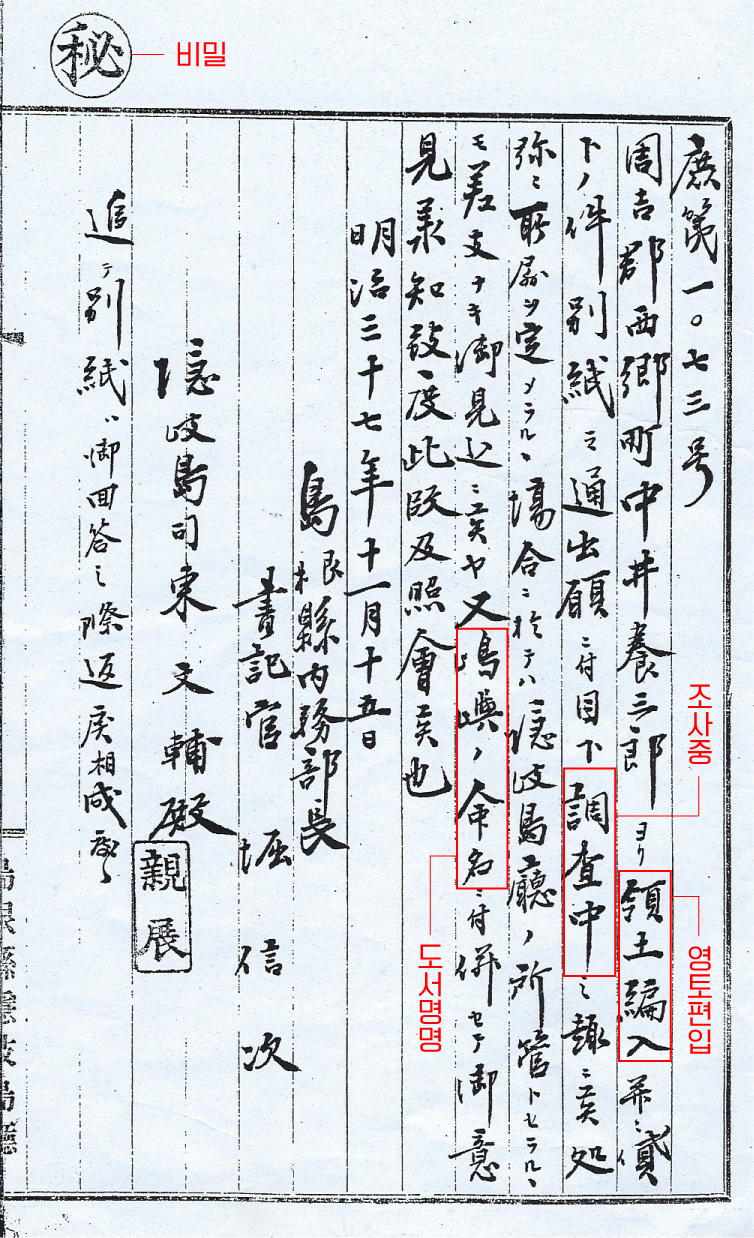 秘
비밀
庶第一〇七三号
周吉郡西郷町中井養三郎ヨリ領土編入并ニ貸
下ノ件別紙之通出願ニ付目下調査中之趣ニ候処
弥々所属ヲ定メラルヽ場合ニ於テハ隠岐島廳ノ所管トセラルヽ
モ差支ナキ御見込ニ候ヤ又嶋嶼ノ命名ニ付併セテ御意
見承知致度此段及照會候也
明治三十七年十一月十五日
島根縣内務部長
書記官 堀信次
隠岐島司東文輔殿
親展
追テ別紙ハ御回答之際返戻相成度
조사중
영토편입
도서명명
島根縣隠岐島廳